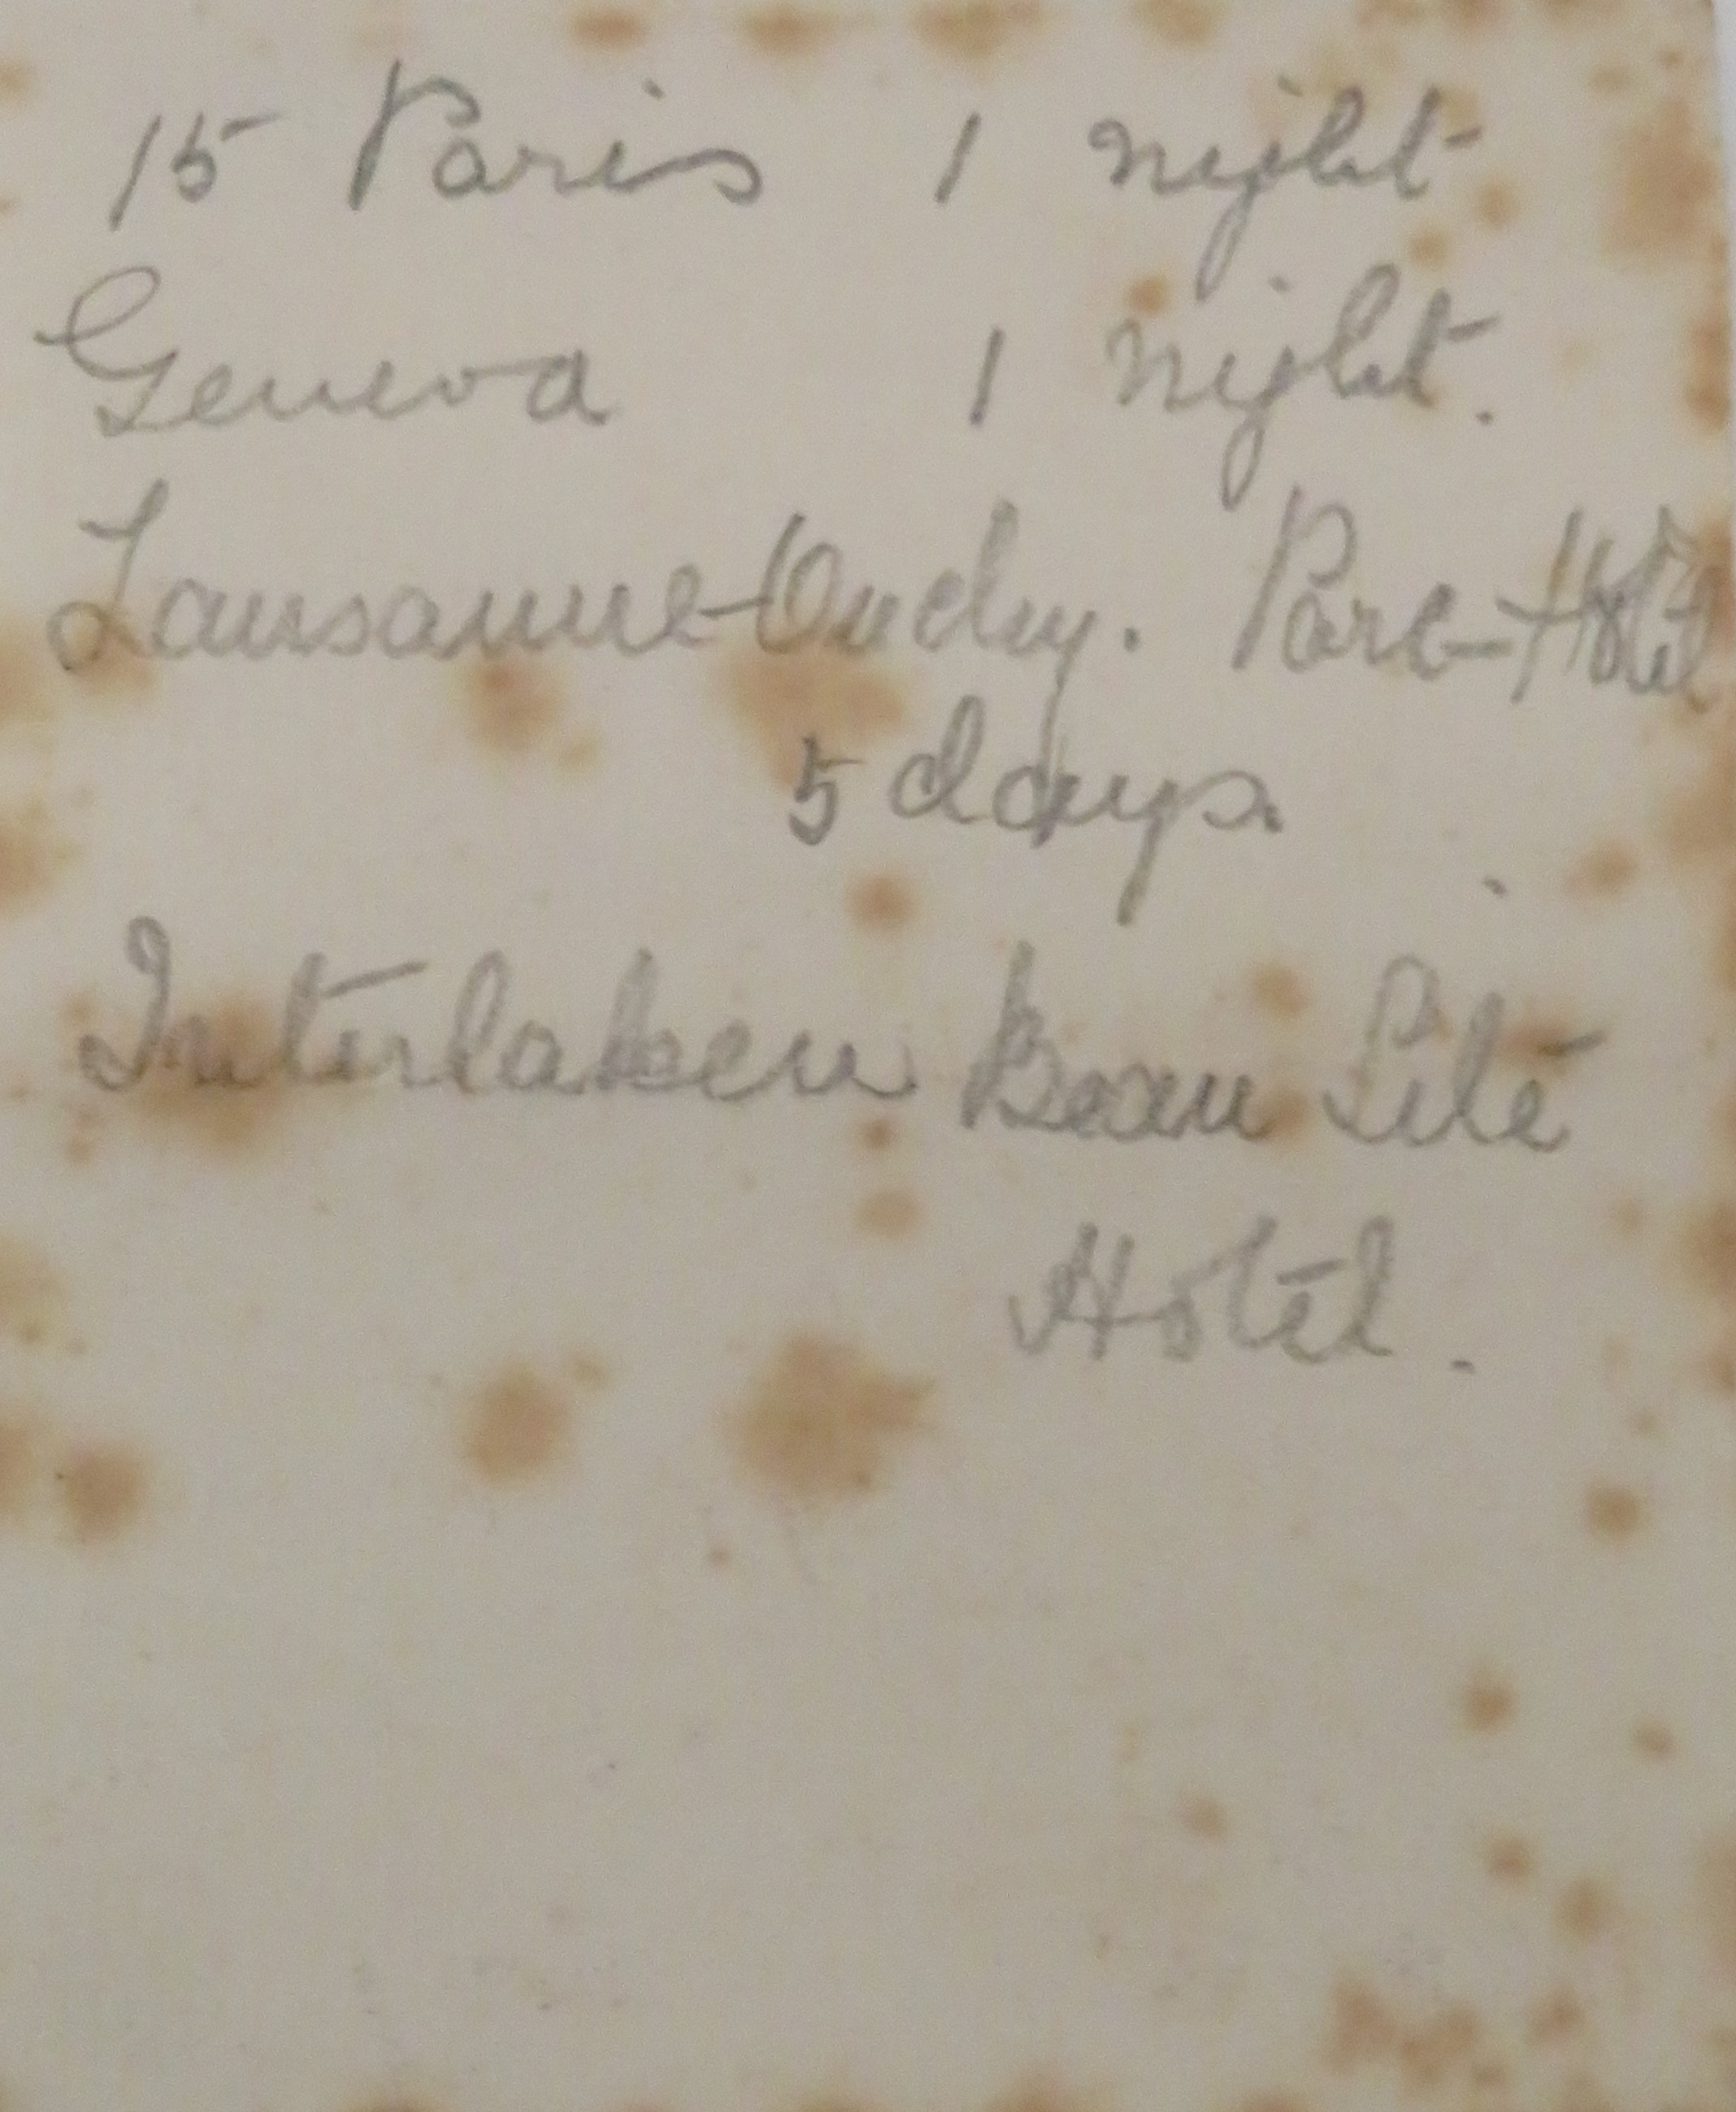 15 Paris 1 night
Geneva 1 night.
Lausanne-Ouchy. Parc-Hôtel
5 days.
Interlaken Beau Site
Hotel.